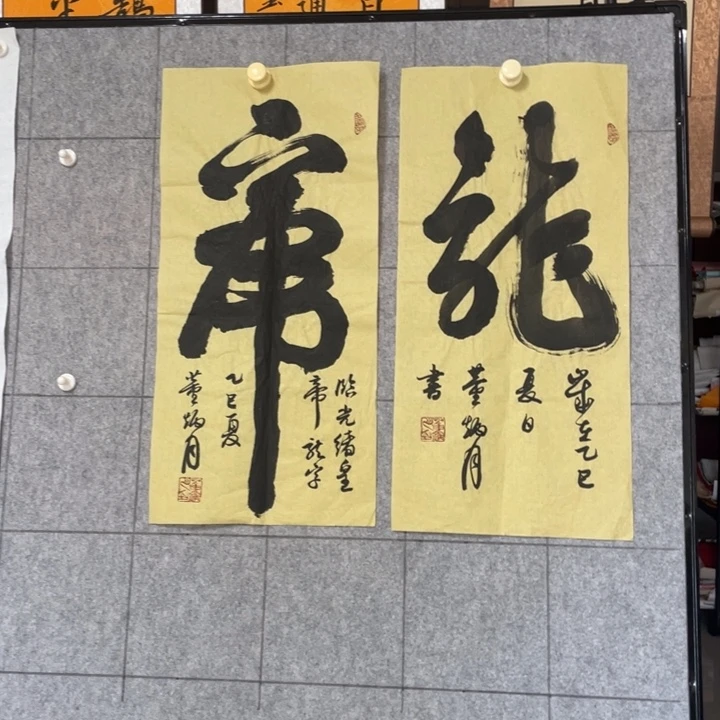 龍
歲在乙巳
夏日
董炳月
書
龍
臨光緒皇
帝龍字
乙巳夏
董炳月